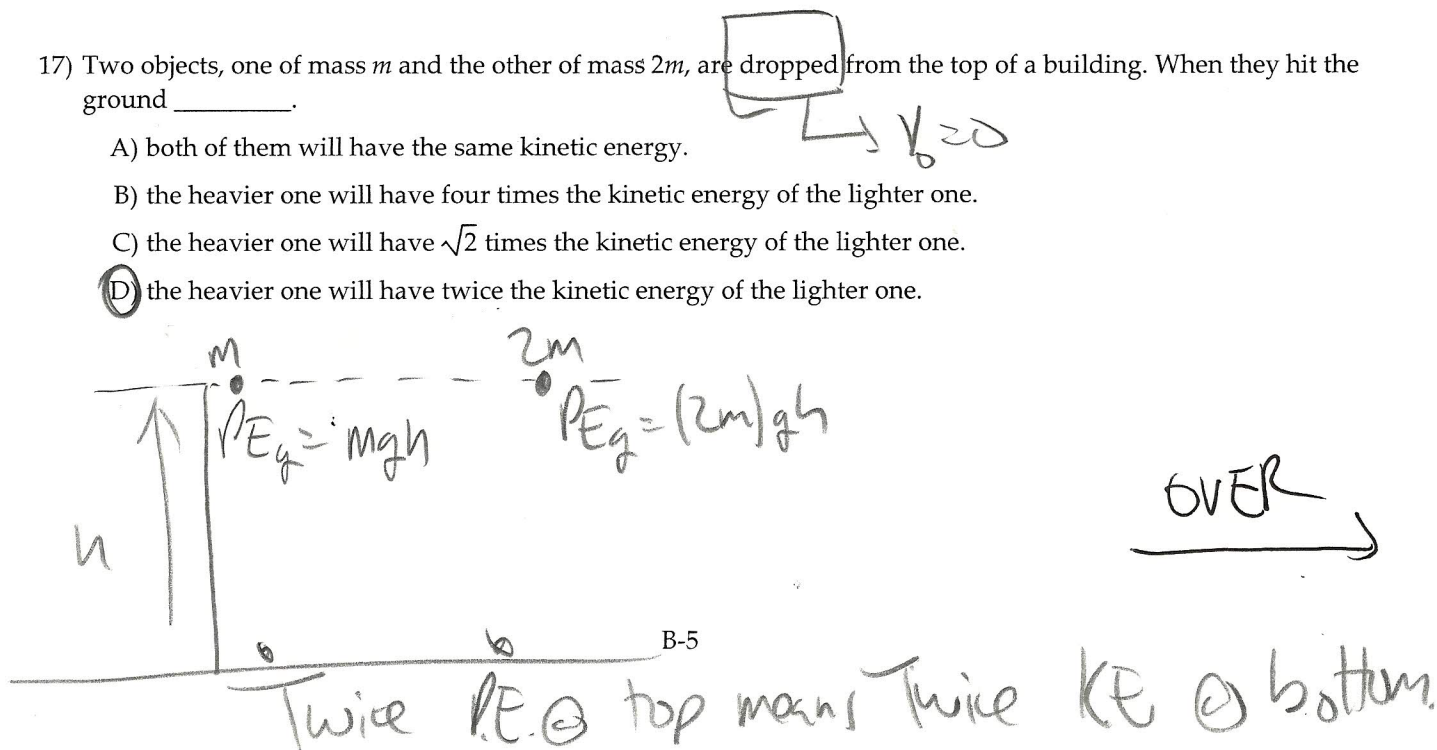 17) Two objects, one of mass m and the other of mass 2m, are dropped from the top of a building. When they hit the
ground __________.
V₀=0
A) both of them will have the same kinetic energy.
B) the heavier one will have four times the kinetic energy of the lighter one.
C) the heavier one will have √2 times the kinetic energy of the lighter one.
D) the heavier one will have twice the kinetic energy of the lighter one.
m 2m
PEg = mgh PEg = (2m)gh
OVER
h
B-5
Twice P.E. @ top means Twice KE @ bottom.